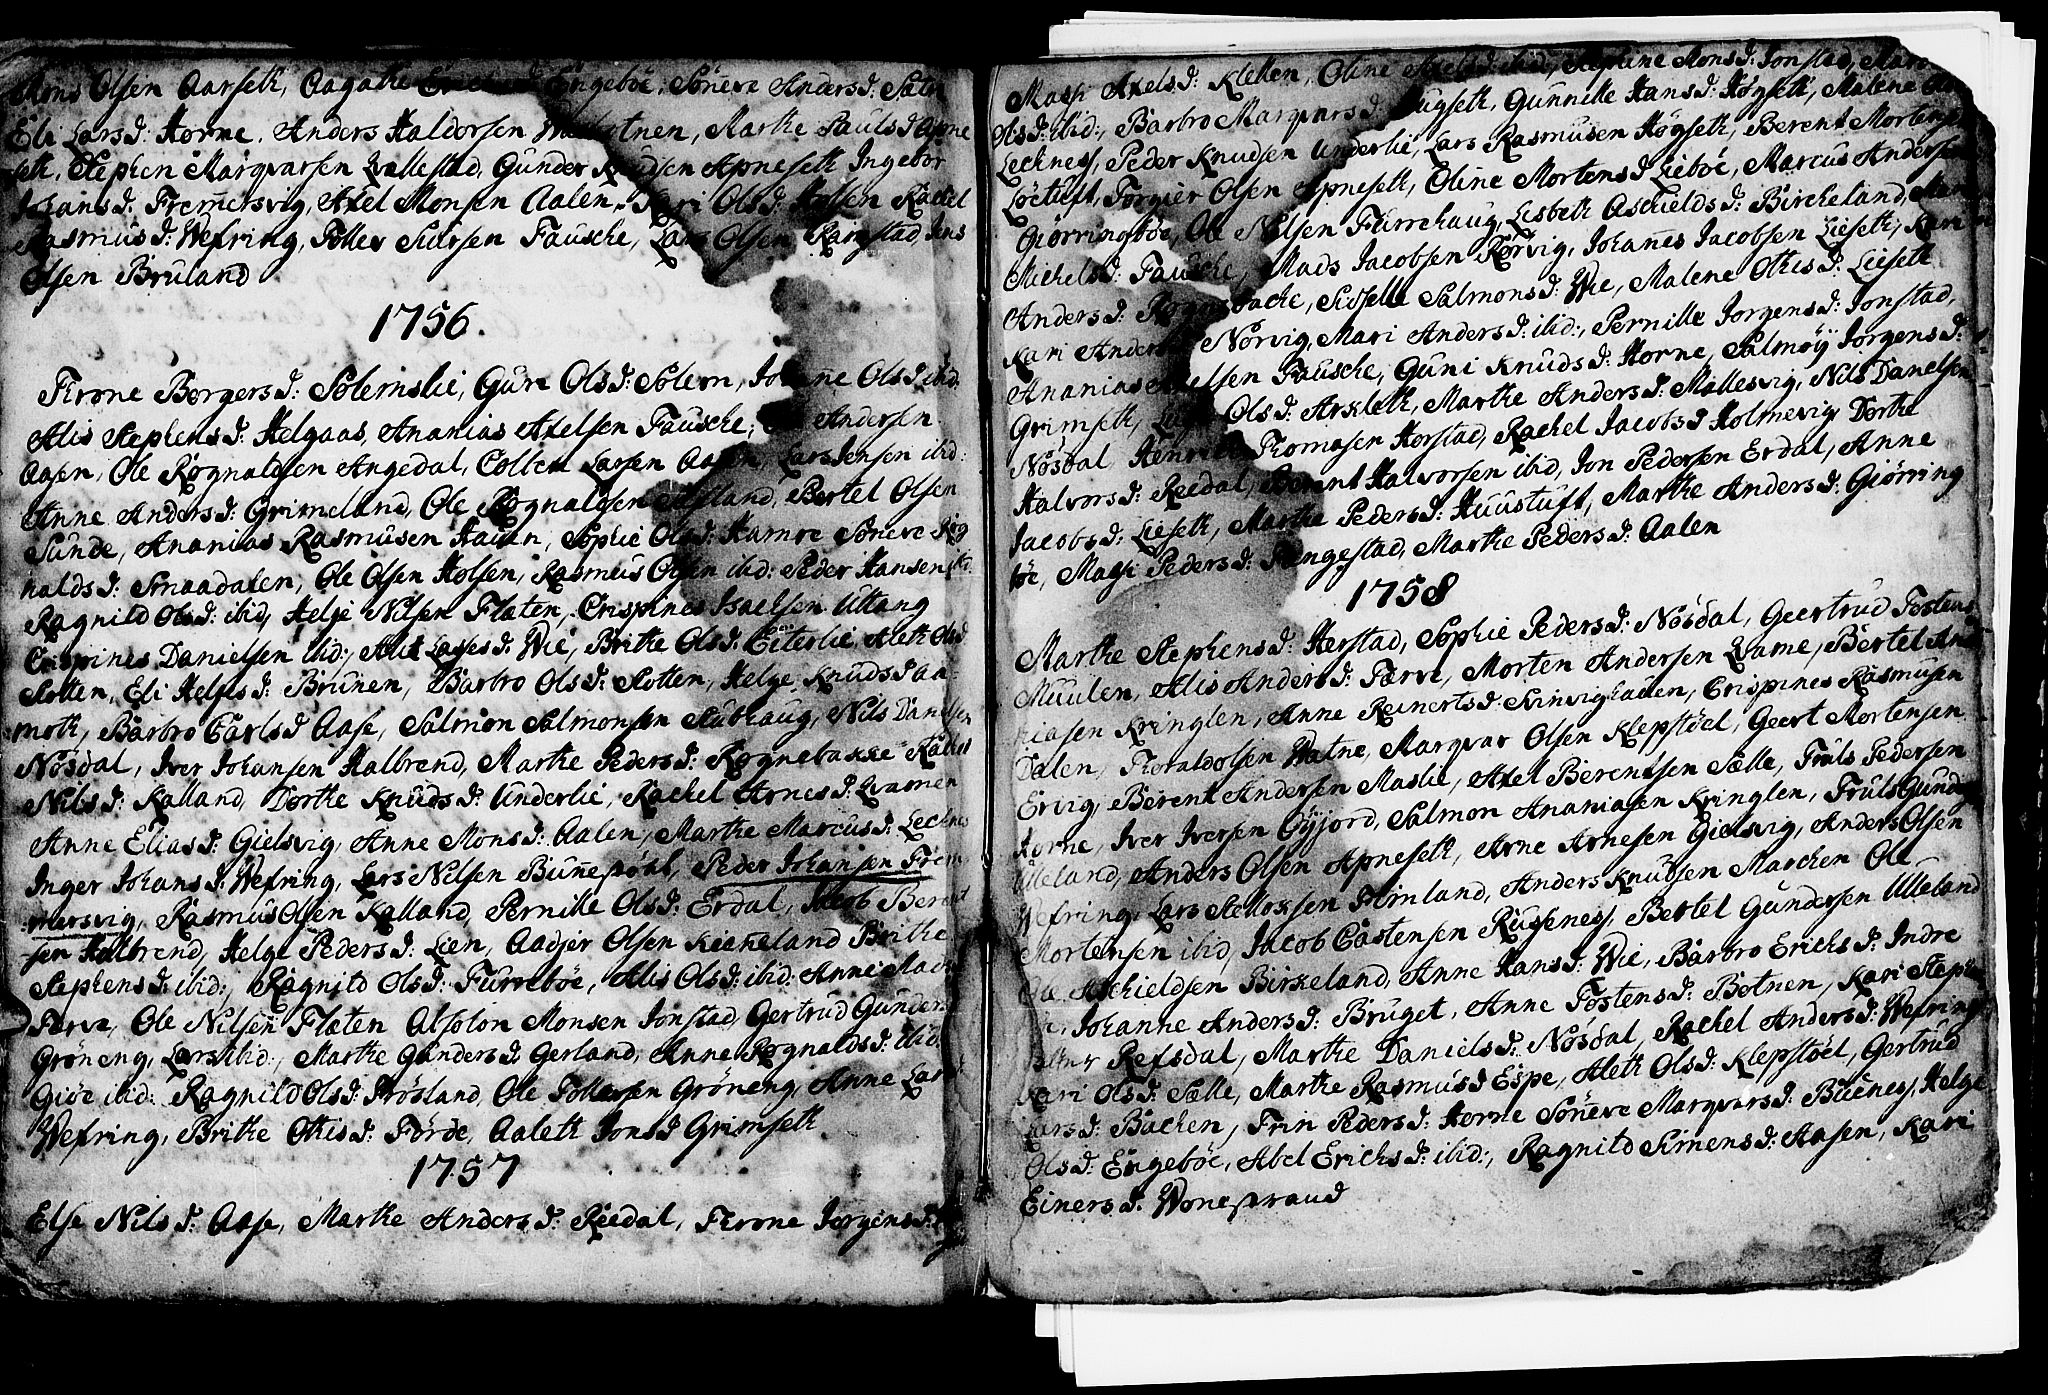 Mons Olsen Aarseth, Aagathe Engeböe, Söneve Andersd:
Eli Larsd: Horne, Anders Haldorsen Marthe Paulsd
seth, Stephen Marqvarsen Qvellestad, Gunder Knudsen Apneseth Ingebor
Johansd: Fremersvig, Axel Monsen Aalen, Kari Olsd: Holsen Rachel
Rasmusd: Wefring, Toller Siursen Fausche, Lars Olsen Jens
Olsen Bruland
1756.
Throne Borgersd: Solemslie, Guri Olsd: Solem, Johanne Olsd ibid,
Alis Stephensd: Helgaas, Ananias Axelsen Fausche, Ole Andersen
Aasen, Ole Rognaldsen Angedal, Colben Larsen Aasen, Lars Jensen ibid:
Anne Andersd: Grimeland, Ole Rognaldsen Bertel Olsen
Sunde, Ananias Rasmusen Hauen, Sophie Olsd: Hamre Söneve Rög
naldsd: Smaadalen, Ole Olsen Holsen, Rasmus Olsen ibid: Peder Hansen ibd.
Ragnild Olsd: ibid, Helje Nilsen Flaten, Crispines Isachsen Uttang
Crispines Danielsen ibid:, Alit Lassesd: Wie, Brithe Olsd: Eiterlie, Aleth Olsd
Slotten, Eli Helgesd: Brunen, Barbro Olsd: Slotten, Helge Knudsd aa-
moth, Barbro Carlsd Aase, Salmon Salmonsen Stubhaug, Nils Danelsen
Nösdal, Iver Johansen Halbrend, Marthe Pedersd: Rognebakke Rachel
Nilsd: Kalland, Dorthe Knudsd: Underlie, Rachel Arnesd: Qvamen
Anne Eliasd: Gielsvig, Anne Monsd: Aalen, Marthe Marcusd: Lecknes
Inger Johansd: Wefring, Lars Nilsen Peder Johansen Frem-
mersvig, Rasmus Olsen Kalland, Pernille Olsd: Erdal, Jacob Berent
sen Halbrend, Helge Pedersd: Lien, Aadjer Olsen Kianeland Brithe
Stephensd: ibid:, Ragnild Olsd: Furreböe, Alis Olsd: ibid: Anne
Farve, Ole Nilsen Flaten Absolon Monsen Jonstad, Gertrud Gunders
Gröneng, Lars ibid:, Marthe Gundersd Gerland, Anne Rognaldsd: ibid:
Giöe ibid: Ragnild Olsd: Ole Tollersen Gröneng, Anne Larsd:
Wefring, Brithe Othisd: Förde, Aaleth Jonsd Grimseth
1757
Else Nilsd: Aase, Marthe Andersd: Reedal, Throne Jorgensd:
Massi Axelsd: Kletten, Oline Axelsd: ibid:, Stephine Monsd: Jonstad,
Olsd: ibid:, Barbro Marqvarsd Gunnille Hansd: Högseth, Malene
Lecknes, Peder Knudsen Underlie, Lars Rasmusen Högseth, Berent Mortensen
Löetuft, Torgier Olsen Apneseth, Oline Mortensd Lieböe, Marcus Andersen
Giörringböe, Ole Nilsen Furrehaug, Lisbeth Aschieldsd: Bircheland,
Michelsd: Fausche, Mads Jacobsen Rörvig, Johannes Jacobsen Lieseth, Kari
Andersd: Sidselle Salmonsd: Wie, Malene Othisd: Lieseth
Kari Andersd: Nörvig, Mari Andersd: ibid:, Pernille Jorgensd: Jonstad,
Ananias Axelsen Fausche, Guni Knudsd: Horne, Salmöy Jorgensd:
Grimseth, Olsd: Arkleth, Marthe Andersd: Mallesvig, Nils Danelsen
Nösdal, Thomasen Horstad, Rachel Jacobsd Holmevig Dorthe
Halvorsd: Reedal, Berent Halvorsen ibid, Jon Pedersen Erdal, Anne
Jacobsd: Lieseth, Marthe Pedersd: Huustuft, Marthe Andersd: Giörring
böe, Massi Pedersd: Marthe Pedersd: Aalen
1758
Marthe Stephensd: Horstad, Sophie Pedersd: Nösdal, Geertrud Tostens
Muulen, Alis Andersd: Farve, Morten Andersen Qvame, Bertel Ana
niasen Kringlen, Anne Reinertsd: Svinvighauen, Crispines Rasmusen
Dalen, Thoraldolsen Watne, Marqvar Olsen Klepstöel, Geert Mortensen
Ervig, Berent Andersen Maslie, Axel Berentsen Sælle, Truls Pedersen
Horne, Iver Iversen Öyjord, Salmon Ananiasen Kringlen, Truls Gunders
Ulleland, Anders Olsen Apneseth, Arne Arnesen Gielsvig, Anders Olsen
Wefring, Lars Anders Knudsen Marchen Ole
Mortensen ibid, Jacob Castensen Rusenes, Bertel Gundersen Ulleland
Ole Aschieldsen Birkeland, Anne Hansd: Wie, Barbro Erichsd: Indre
Johanne Andersd: Bruget, Anne Tostensd: Botnen, Kari Stephen
Refsdal, Marthe Danielsd: Nösdal, Rachel Andersd: Wefring
Kari Olsd: Sælle, Marthe Rasmusd Espe, Aleth Olsd: Klepstöel, Gertrud
Larsd: Bachen, Trin Pedersd: Horne Söneve Marqvarsd: Buenes, Helge
Olsd: Engeböe, Abel Erichsd: ibid:, Ragnild Simensd: Aasen, Kari
Einersd: Wonesraud